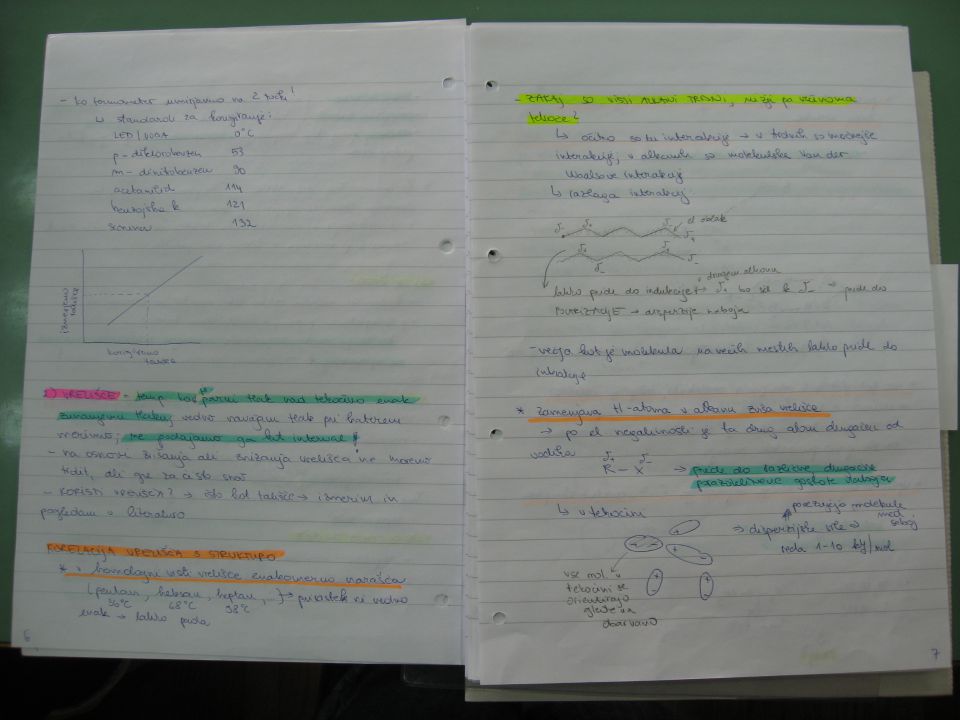 - ko termometer umirjamo na 2 točki!
↳ standardi za korigiranje:
LED/voda 0°C
p-diklorobenzen 53
m-dinitrobenzen 90
acetanilid 114
benzojska k 121
sečnina 132
izmerjeno tališče
korigirano
VRELIŠČE - temp ko je parni tlak nad tekočino enak
zunanjemu tlaku, vedno navajamo tlak pri katerem
merimo, ne podajamo ga kot interval!
- na osnovi zvišanja ali znižanja vrelišča ne moremo
trdit, ali gre za čisto snov
- KORISTI VRELIŠČA? → isto kot tališče → izmerim in
pogledam v literaturo
KORELACIJA VRELIŠČA S STRUKTURO
* v homologni vrsti vrelišče enakomerno narašča
(pentan, heksan, heptan, ...) → prirastek ni vedno
36°C 68°C 98°C
enak → lahko pada
6
- ZAKAJ so višji alkani TRDNI, nižji pa večinoma
tekoče?
↳ očitno so tu interakcije → v trdnih so močnejše
interakcije, v alkanih so molekulske Van der
Waalsove interakcije
↳ razlaga interakcij
el oblak
drugem alkanu
lahko pride do indukcije → δ+ bo šel k δ- → pride do
POLARIZACIJE → disperzije naboja
- večja kot je molekula, na večih mestih lahko pride do
interakcije
* zamenjava H-atoma v alkanu zviša vrelišče
→ po el negativnosti je ta drug atom drugačen od
vodika
δ+ δ-
R - X → pride do različne, drugačne
porazdelitve gostote naboja
↳ v tekočini
povezujejo molekule
med seboj
⇒ disperzijske sile
reda 1-10 kJ/mol
vse mol. v
tekočini se
orientirajo
glede na
7